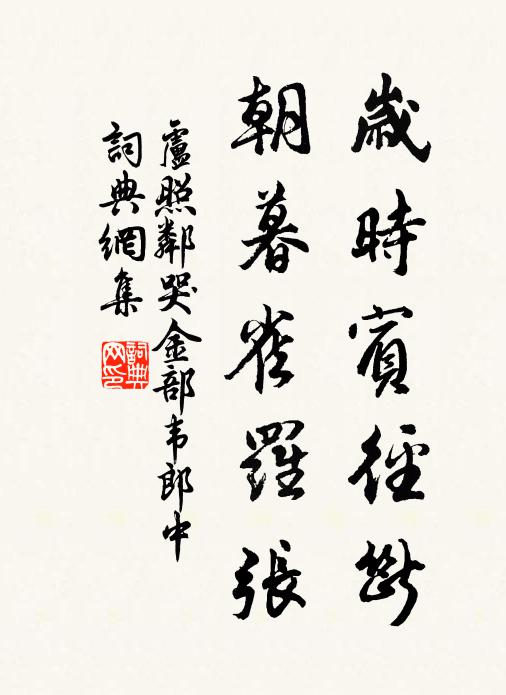 歲時賓徑斷
朝暮雀羅張
盧照鄰哭金部韦郎中
詞典網集
詞典網印